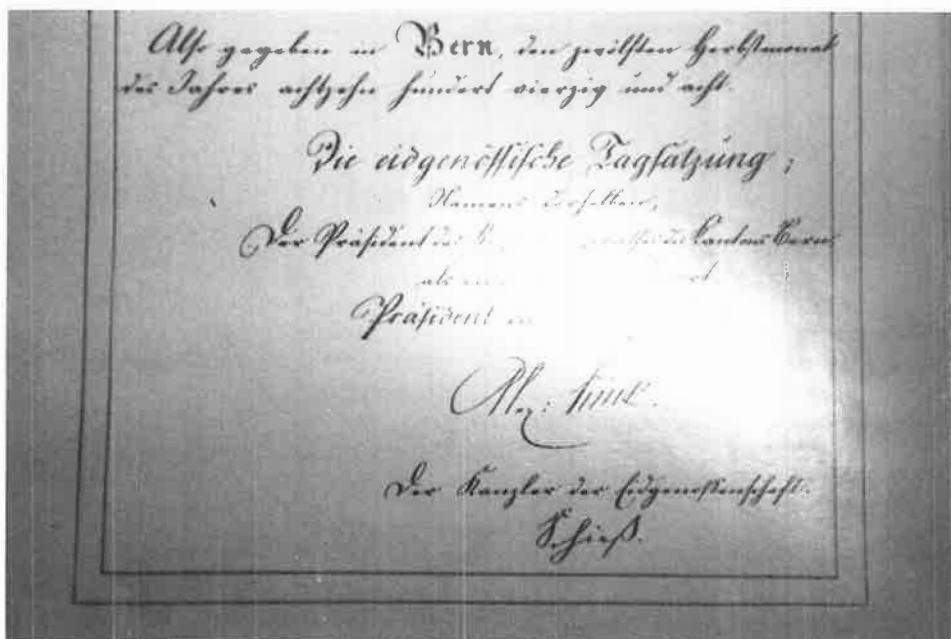 Also gegeben in Bern, den zwölften Herbstmonat
des Jahres achtzehn hundert vierzig und acht.
Die eidgenössische Tagsatzung;
Namens derselben,
Der Präsident des Kantons Bern,
als
Präsident
Alex: Funk.
Der Kanzler der Eidgenossenschaft:
Schieß.